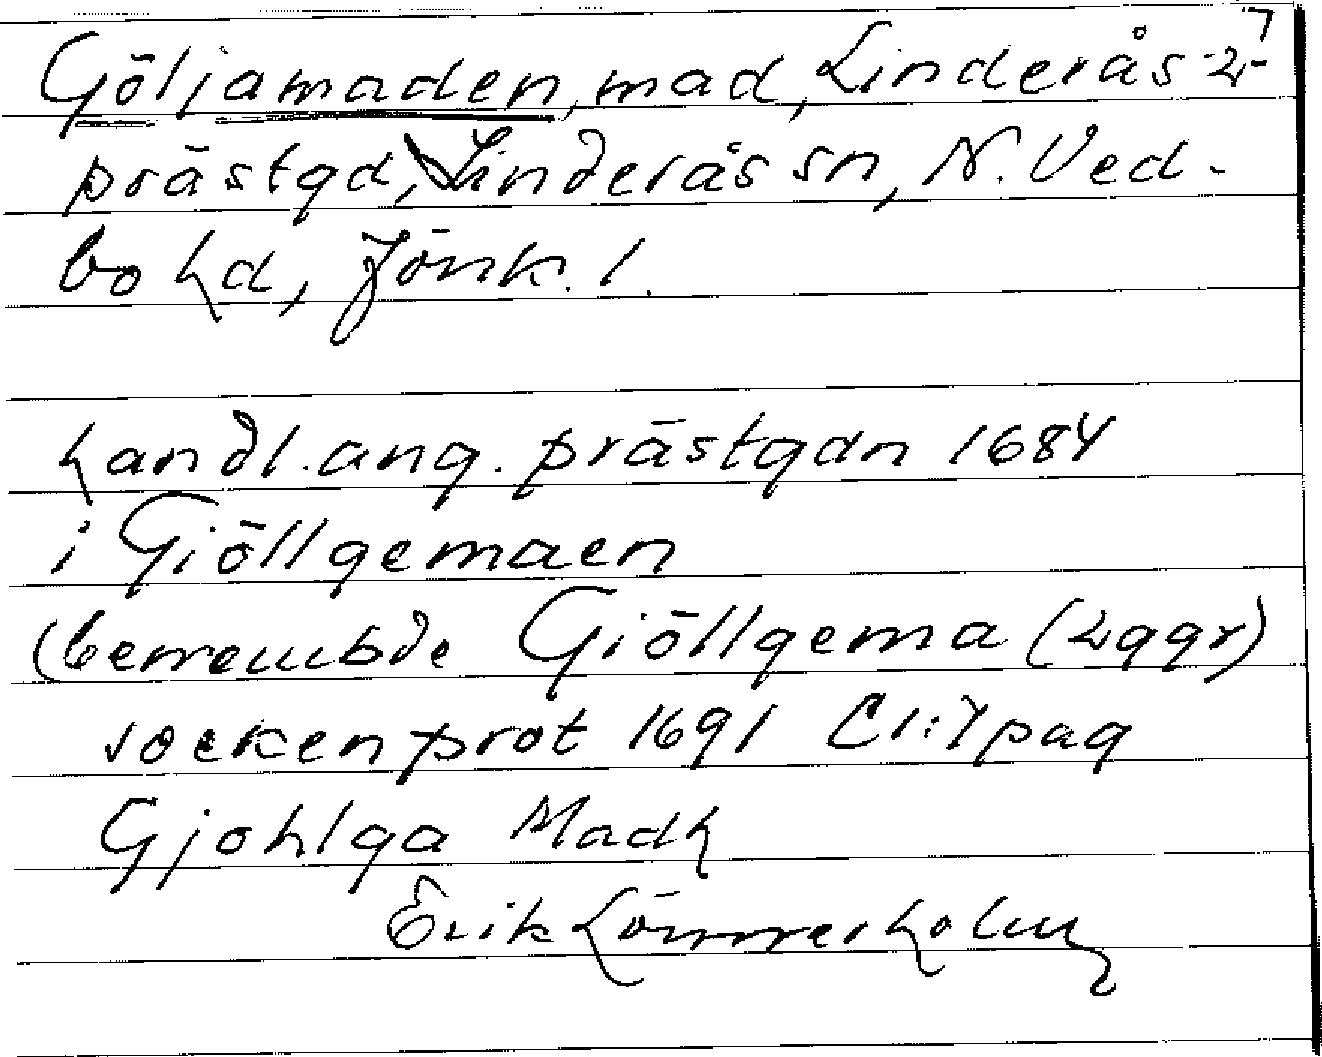 Göljamaden, mad, Linderås
prästgd, Linderås sn, N. Ved-
bo hd, Jönk. l.
handl. ang. prästgdn 1684
i Giöllgemaen
( Giöllgema (2ggr)
sockenprot 1691 CI:1 pag
Gjohlga Madh
Erik Lönnerholm